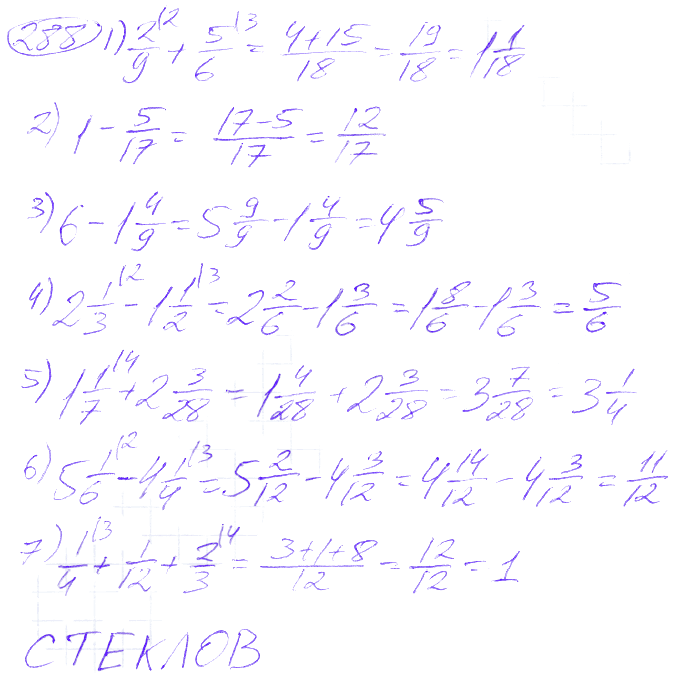 288 1) 2/9 |2 + 5/6 |3 = 4+15/18 = 19/18 = 1 1/18
2) 1 - 5/17 = 17-5/17 = 12/17
3) 6 - 1 4/9 = 5 9/9 - 1 4/9 = 4 5/9
4) 2 1/3 |2 - 1 1/2 |3 = 2 2/6 - 1 3/6 = 1 8/6 - 1 3/6 = 5/6
5) 1 1/7 |4 + 2 3/28 = 1 4/28 + 2 3/28 = 3 7/28 = 3 1/4
6) 5 1/6 |2 - 4 1/4 |3 = 5 2/12 - 4 3/12 = 4 14/12 - 4 3/12 = 11/12
7) 1/4 |3 + 1/12 + 2/3 |4 = 3+1+8/12 = 12/12 = 1
СТЕКЛОВ